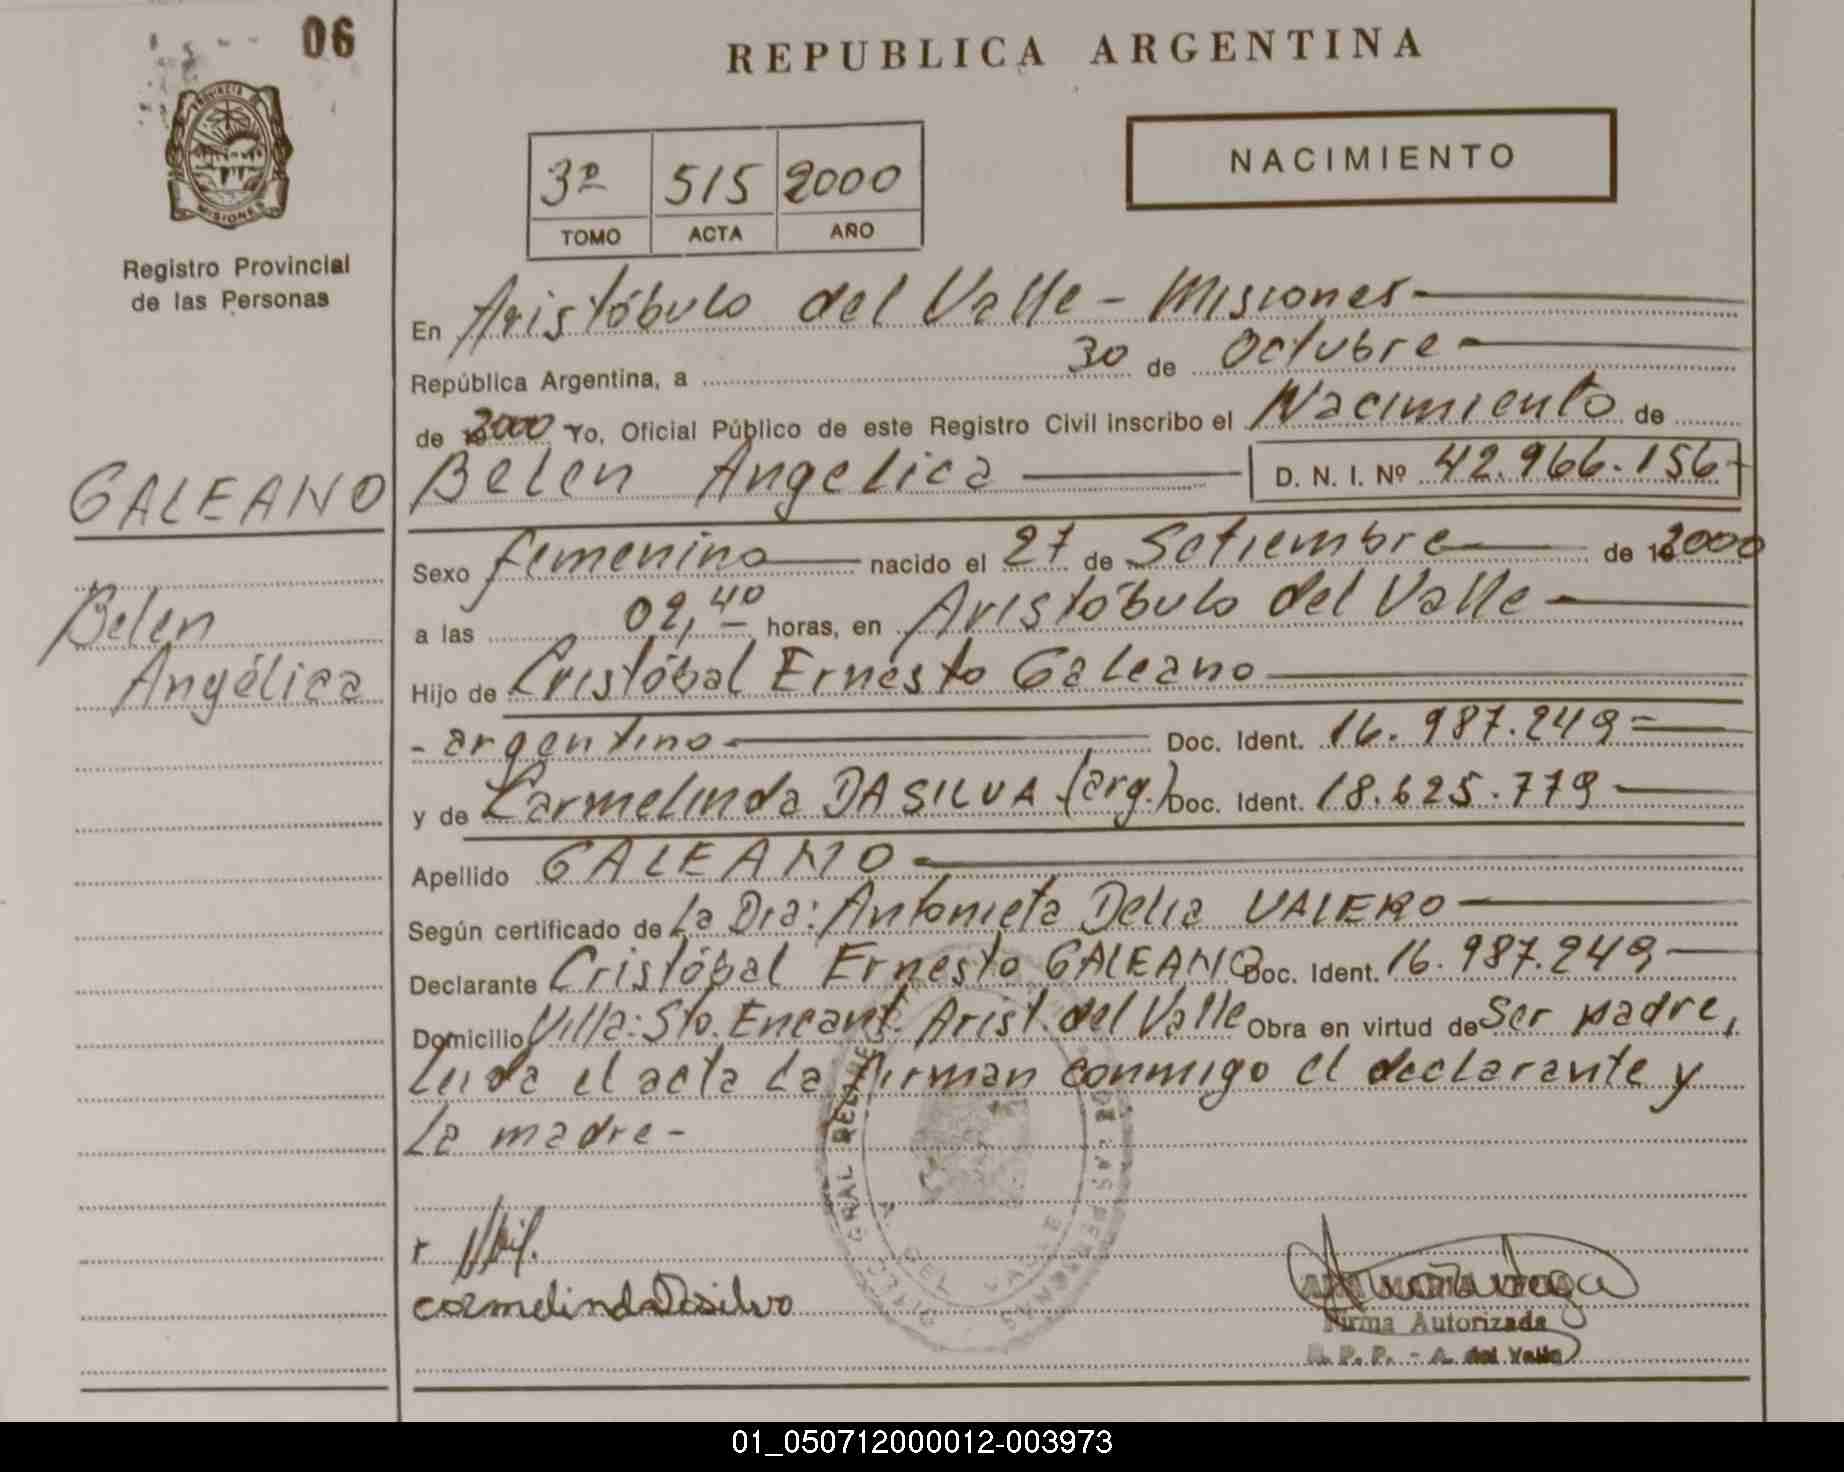 06
REPUBLICA ARGENTINA
PROVINCIA DE
MISIONES
Registro Provincial
de las Personas
3º 515 2000
TOMO ACTA AÑO
NACIMIENTO
En Aristóbulo del Valle - Misiones
República Argentina, a 30 de Octubre
de 2000 Yo, Oficial Público de este Registro Civil inscribo el Nacimiento de
Belen Angelica D. N. I. Nº 42.966.156
GALEANO
Belen
Angélica
Sexo femenino nacido el 27 de Setiembre de 2000
a las 02,40 horas, en Aristóbulo del Valle
Hijo de Cristóbal Ernesto Galeano
- argentino Doc. Ident. 16.987.249
y de Carmelinda DA SILVA (arg.) Doc. Ident. 18.625.779
Apellido GALEANO
Según certificado de La Dra: Antonieta Delia VALERO
Declarante Cristóbal Ernesto GALEANO Doc. Ident. 16.987.249
Domicilio Villa: Sto. Encant. Arist. del Valle Obra en virtud de Ser padre,
Leida el acta La firman conmigo el declarante y
La madre -
carmelinda Dasilva
Firma Autorizada
R. P. P. - A. del Valle
01_050712000012-003973